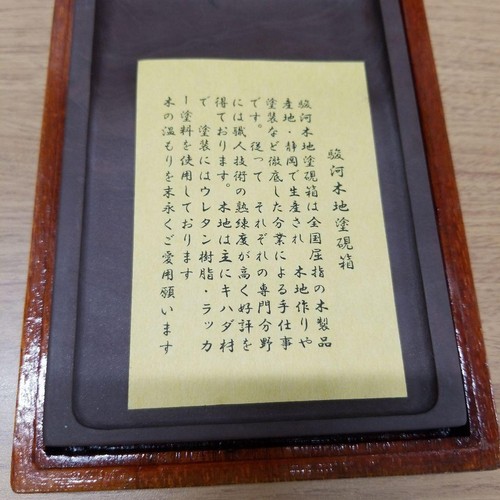 駿河木地塗硯箱
駿河木地塗硯箱は全国屈指の木製品
産地・静岡で生産され 木地作りや
塗装など徹底した分業による手仕事
です。従って それぞれの専門分野
には職人技術の熟練度が高く好評を
得ております。木地は主にキハダ材
で 塗装にはウレタン樹脂・ラッカ
ー塗料を使用しております
木の温もりを末永くご愛用願います